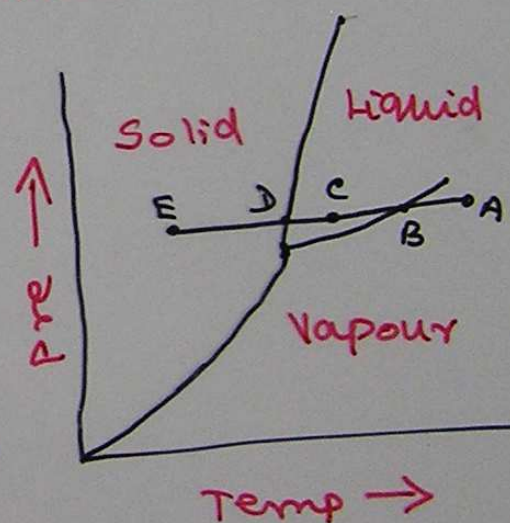 Solid
Liquid
E
D
C
B
A
Vapour
Pre
Temp